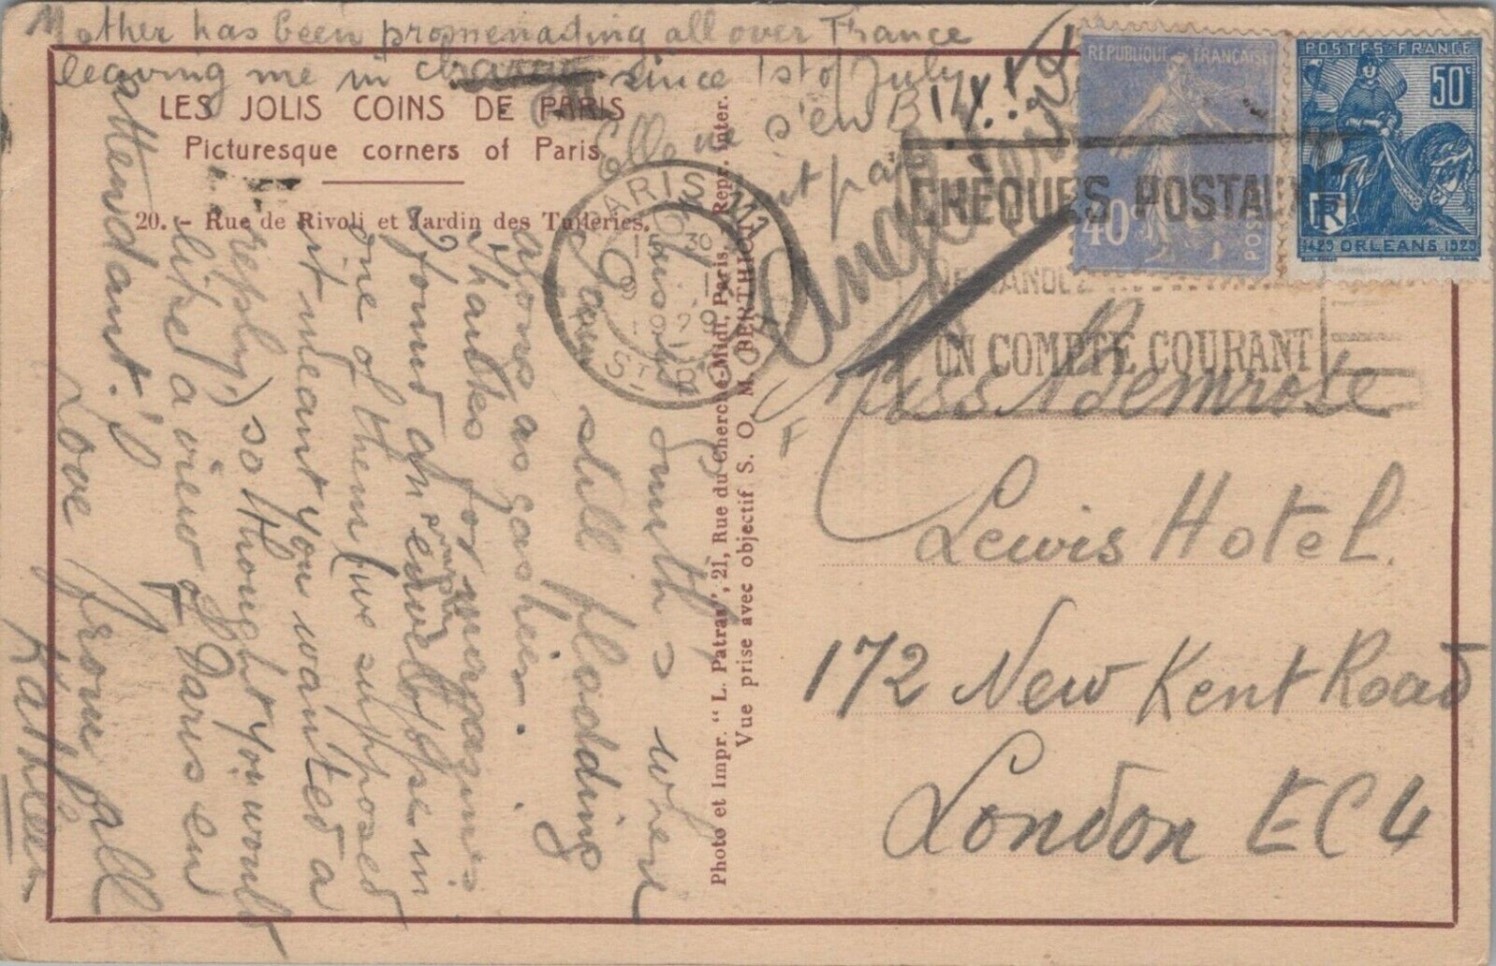 POSTES FRANCE
50c
1429 ORLEANS 1929
RF
REPUBLIQUE FRANÇAISE
POSTES
40c
CHEQUES POSTAUX
UN COMPTE COURANT
PARIS 111
15 30
9 - IX
1929
Miss
Lewis Hotel.
172 New Kent Road
London E C 4
LES JOLIS COINS DE PARIS
Picturesque corners of Paris
20. - Rue de Rivoli et Jardin des Tuileries.
Vue prise avec objectif S. O. M. BERTHIOT
Photo et Impr. "L. Patras", 21, Rue du Cherche-Midi, Paris. - Repr. inter.
This is Smith's where
I am still plodding
along as cashier.
Thanks for magazines
I found an empty envelope in
one of them (we supposed
it meant you wanted a
reply,) so thought you would
like a view of Paris en
attendant!
Love from all
Kathleen
Mother has been promenading all over France
leaving me in charge since 1st of July
Elle ne s'en
est pas